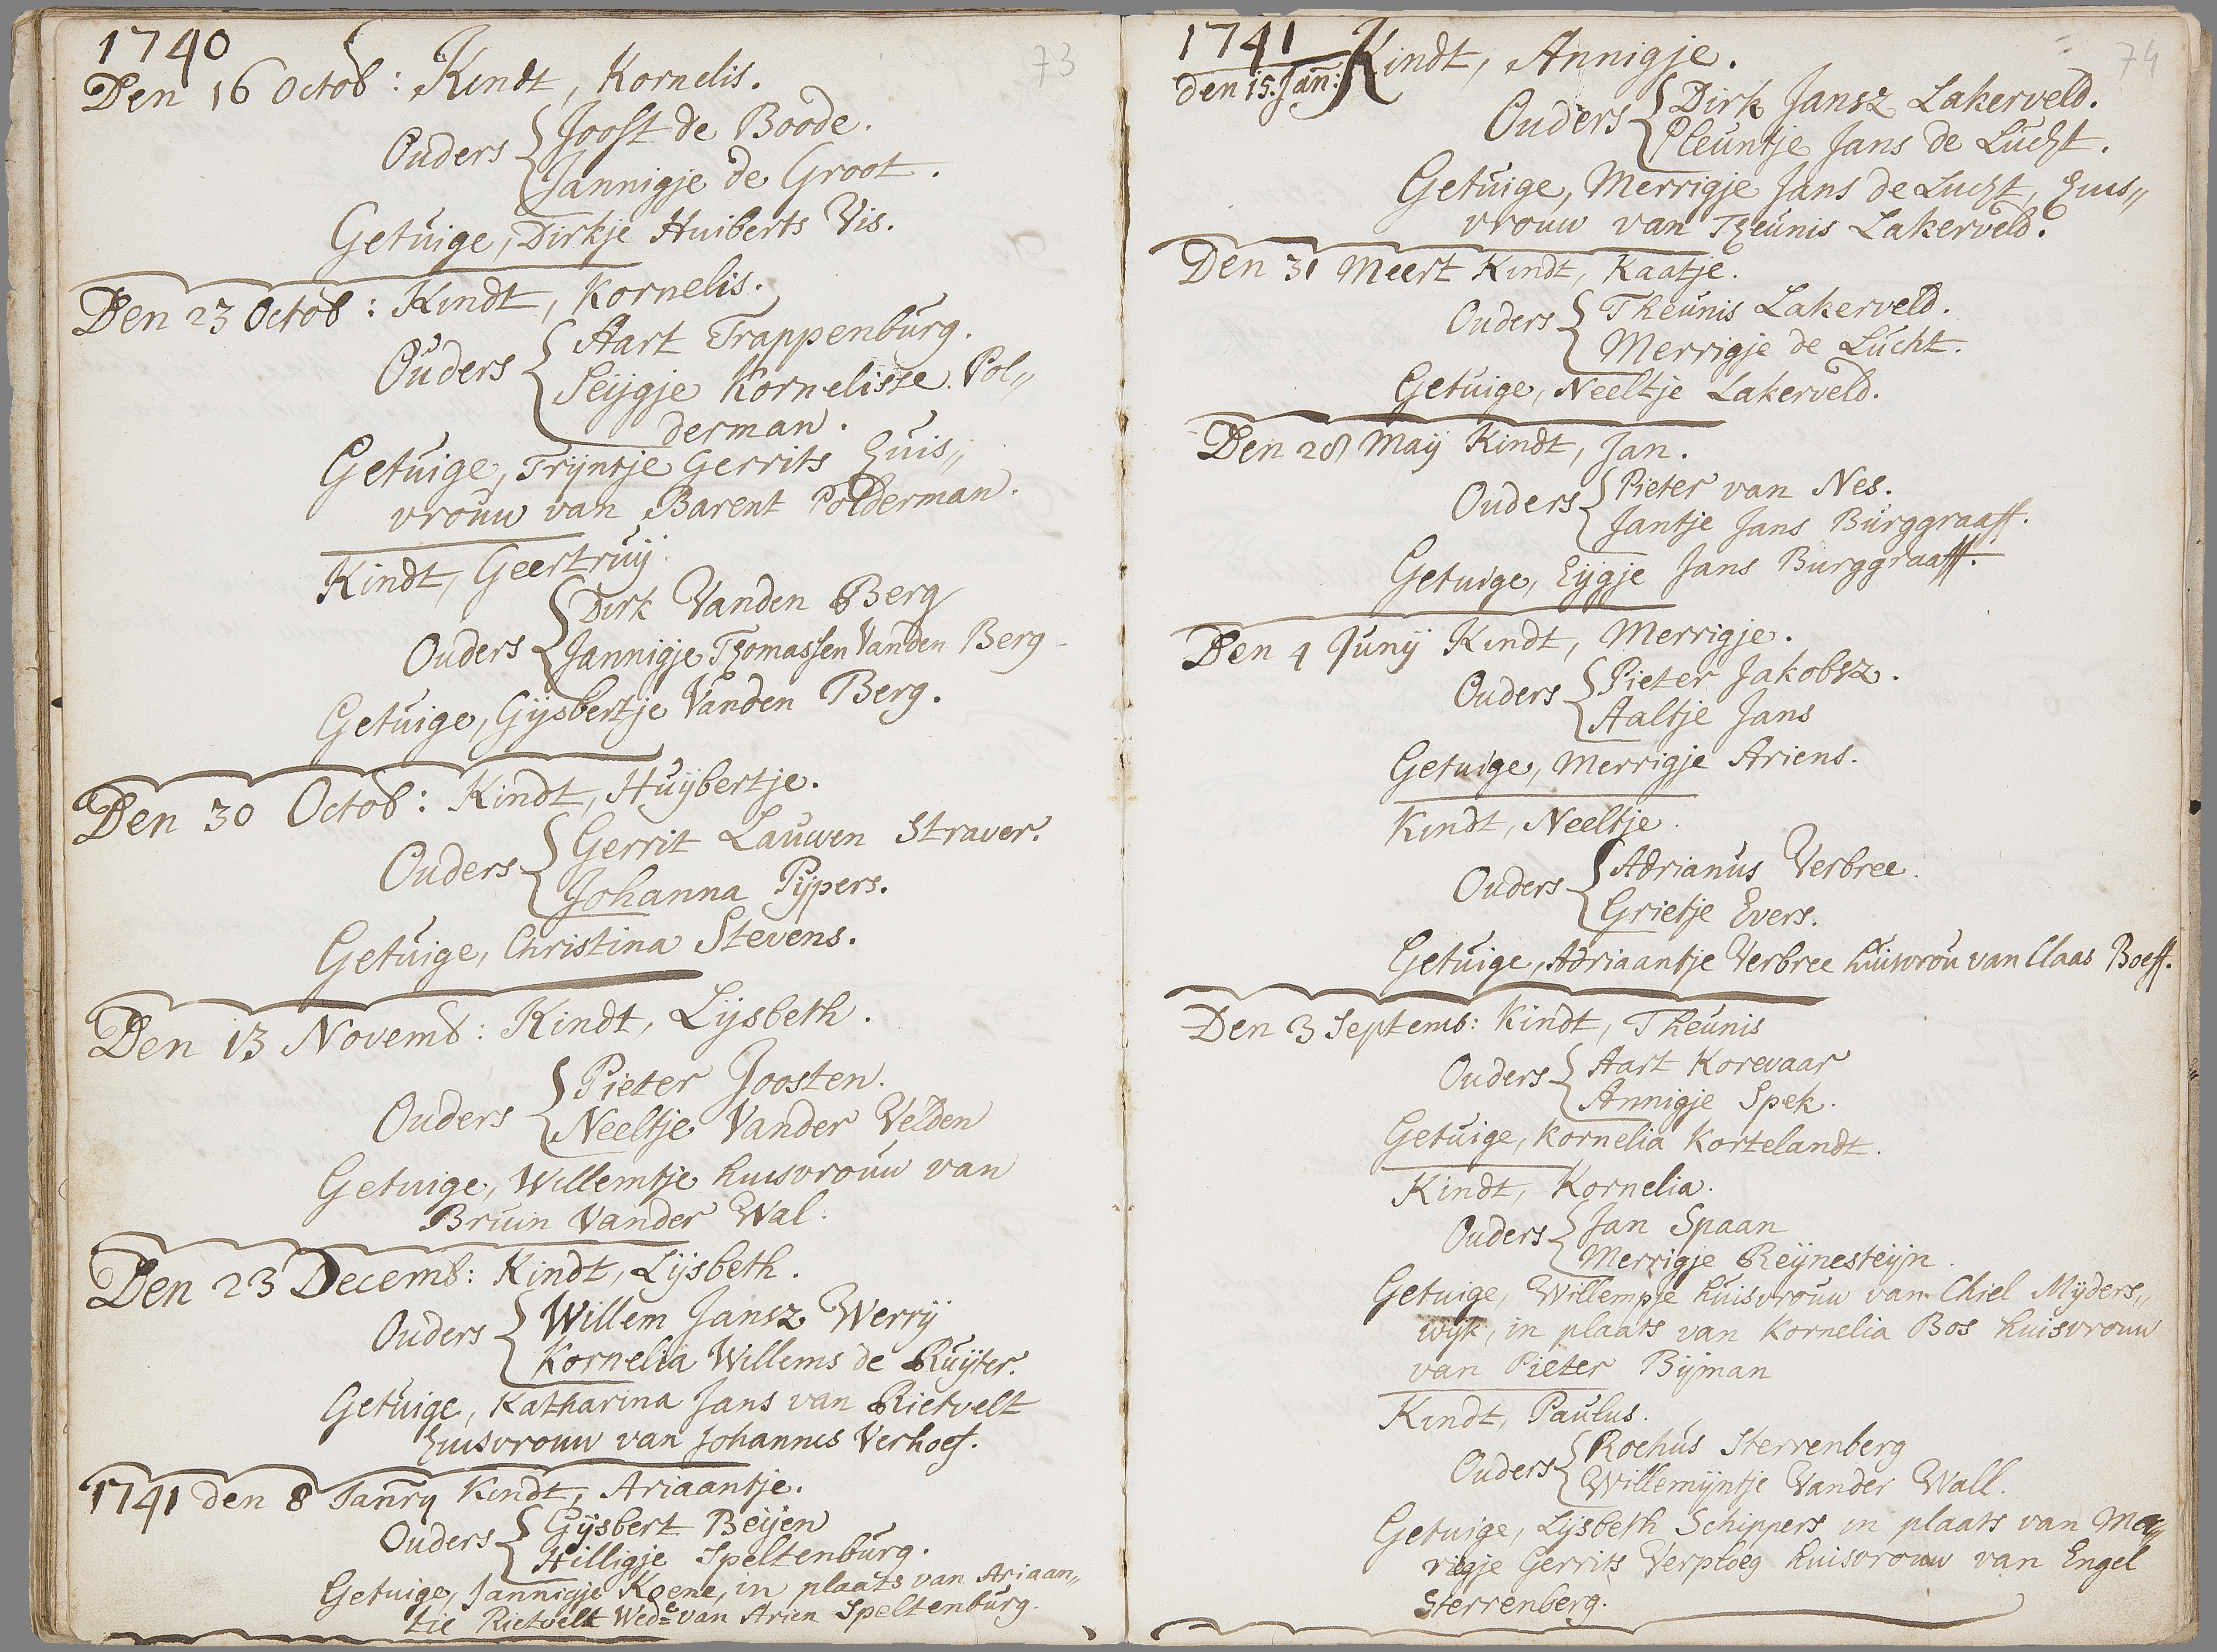 73
1740
Den 16 Octob: Kindt, Kornelis.
Ouders { Joost de Boode.
Jannigje de Groot.
Getuige, Dirkje Huiberts Vis.
Den 23 Octob: Kindt, Kornelis.
Ouders { Aart Trappenburg.
Seijgje Kornelisse Pol„
derman.
Getuige, Trijntje Gerrits huis„
vrouw van Barent Polderman.
Kindt, Geertruij.
Ouders { Dirk Vanden Berg
Jannigje Thomassen Vanden Berg
Getuige, Gijsbertje Vanden Berg.
Den 30 Octob: Kindt, Huijbertje.
Ouders { Gerrit Lauwen Straver.
Johanna Pijpers.
Getuige, Christina Stevens.
Den 13 Novemb: Kindt, Lijsbeth.
Ouders { Pieter Joosten.
Neeltje Vander Velden
Getuige, Willemtje huisvrouw van
Bruin Vander Wal.
Den 23 Decemb: Kindt, Lijsbeth.
Ouders { Willem Jansz Werrij
Kornelia Willems de Ruijter.
Getuige, Katharina Jans van Rietvelt
huisvrouw van Johannes Verhoef.
1741 den 8 Janry Kindt, Ariaantje.
Ouders { Gijsbert Beijen
Hilligje Speltenburg.
Getuige, Jannigje Koene, in plaats van Ariaan„
tie Rietvelt Wede van Arien Speltenburg.
74
1741
den 15. Jan: Kindt, Annigje.
Ouders { Dirk Jansz Lakerveld.
Pleuntje Jans de Lucht.
Getuige, Merrigje Jans de Lucht, huis„
vrouw van Theunis Lakerveld.
Den 31 Meert Kindt, Kaatje.
Ouders { Theunis Lakerveld.
Merrigje de Lucht.
Getuige, Neeltje Lakerveld.
Den 28 Maij Kindt, Jan.
Ouders { Pieter van Nes.
Jantje Jans Burggraaff.
Getuige, Eijgje Jans Burggraaff.
Den 4 Junij Kindt, Merrigje.
Ouders { Pieter Jakobsz.
Aaltje Jans
Getuige, Merrigje Ariens.
Kindt, Neeltje.
Ouders { Adrianus Verbree.
Grietje Evers.
Getuige, Adriaantje Verbree huisvrou van Claas Boeff.
Den 3 Septemb: Kindt, Theunis
Ouders { Aart Korevaar
Annigje Spek.
Getuige, Kornelia Kortelandt.
Kindt, Kornelia.
Ouders { Jan Spaan
Merrigje Reijnesteijn.
Getuige, Willempje huisvrouw van Chiel Mijders„
wijk, in plaats van Kornelia Bos huisvrouw
van Pieter Bijman
Kindt, Paulus.
Ouders { Rochus Sterrenberg
Willemijntje Vander Wall.
Getuige, Lijsbeth Schippers in plaats van Mer„
rigje Gerrits Verploeg huisvrouw van Engel
Sterrenberg.